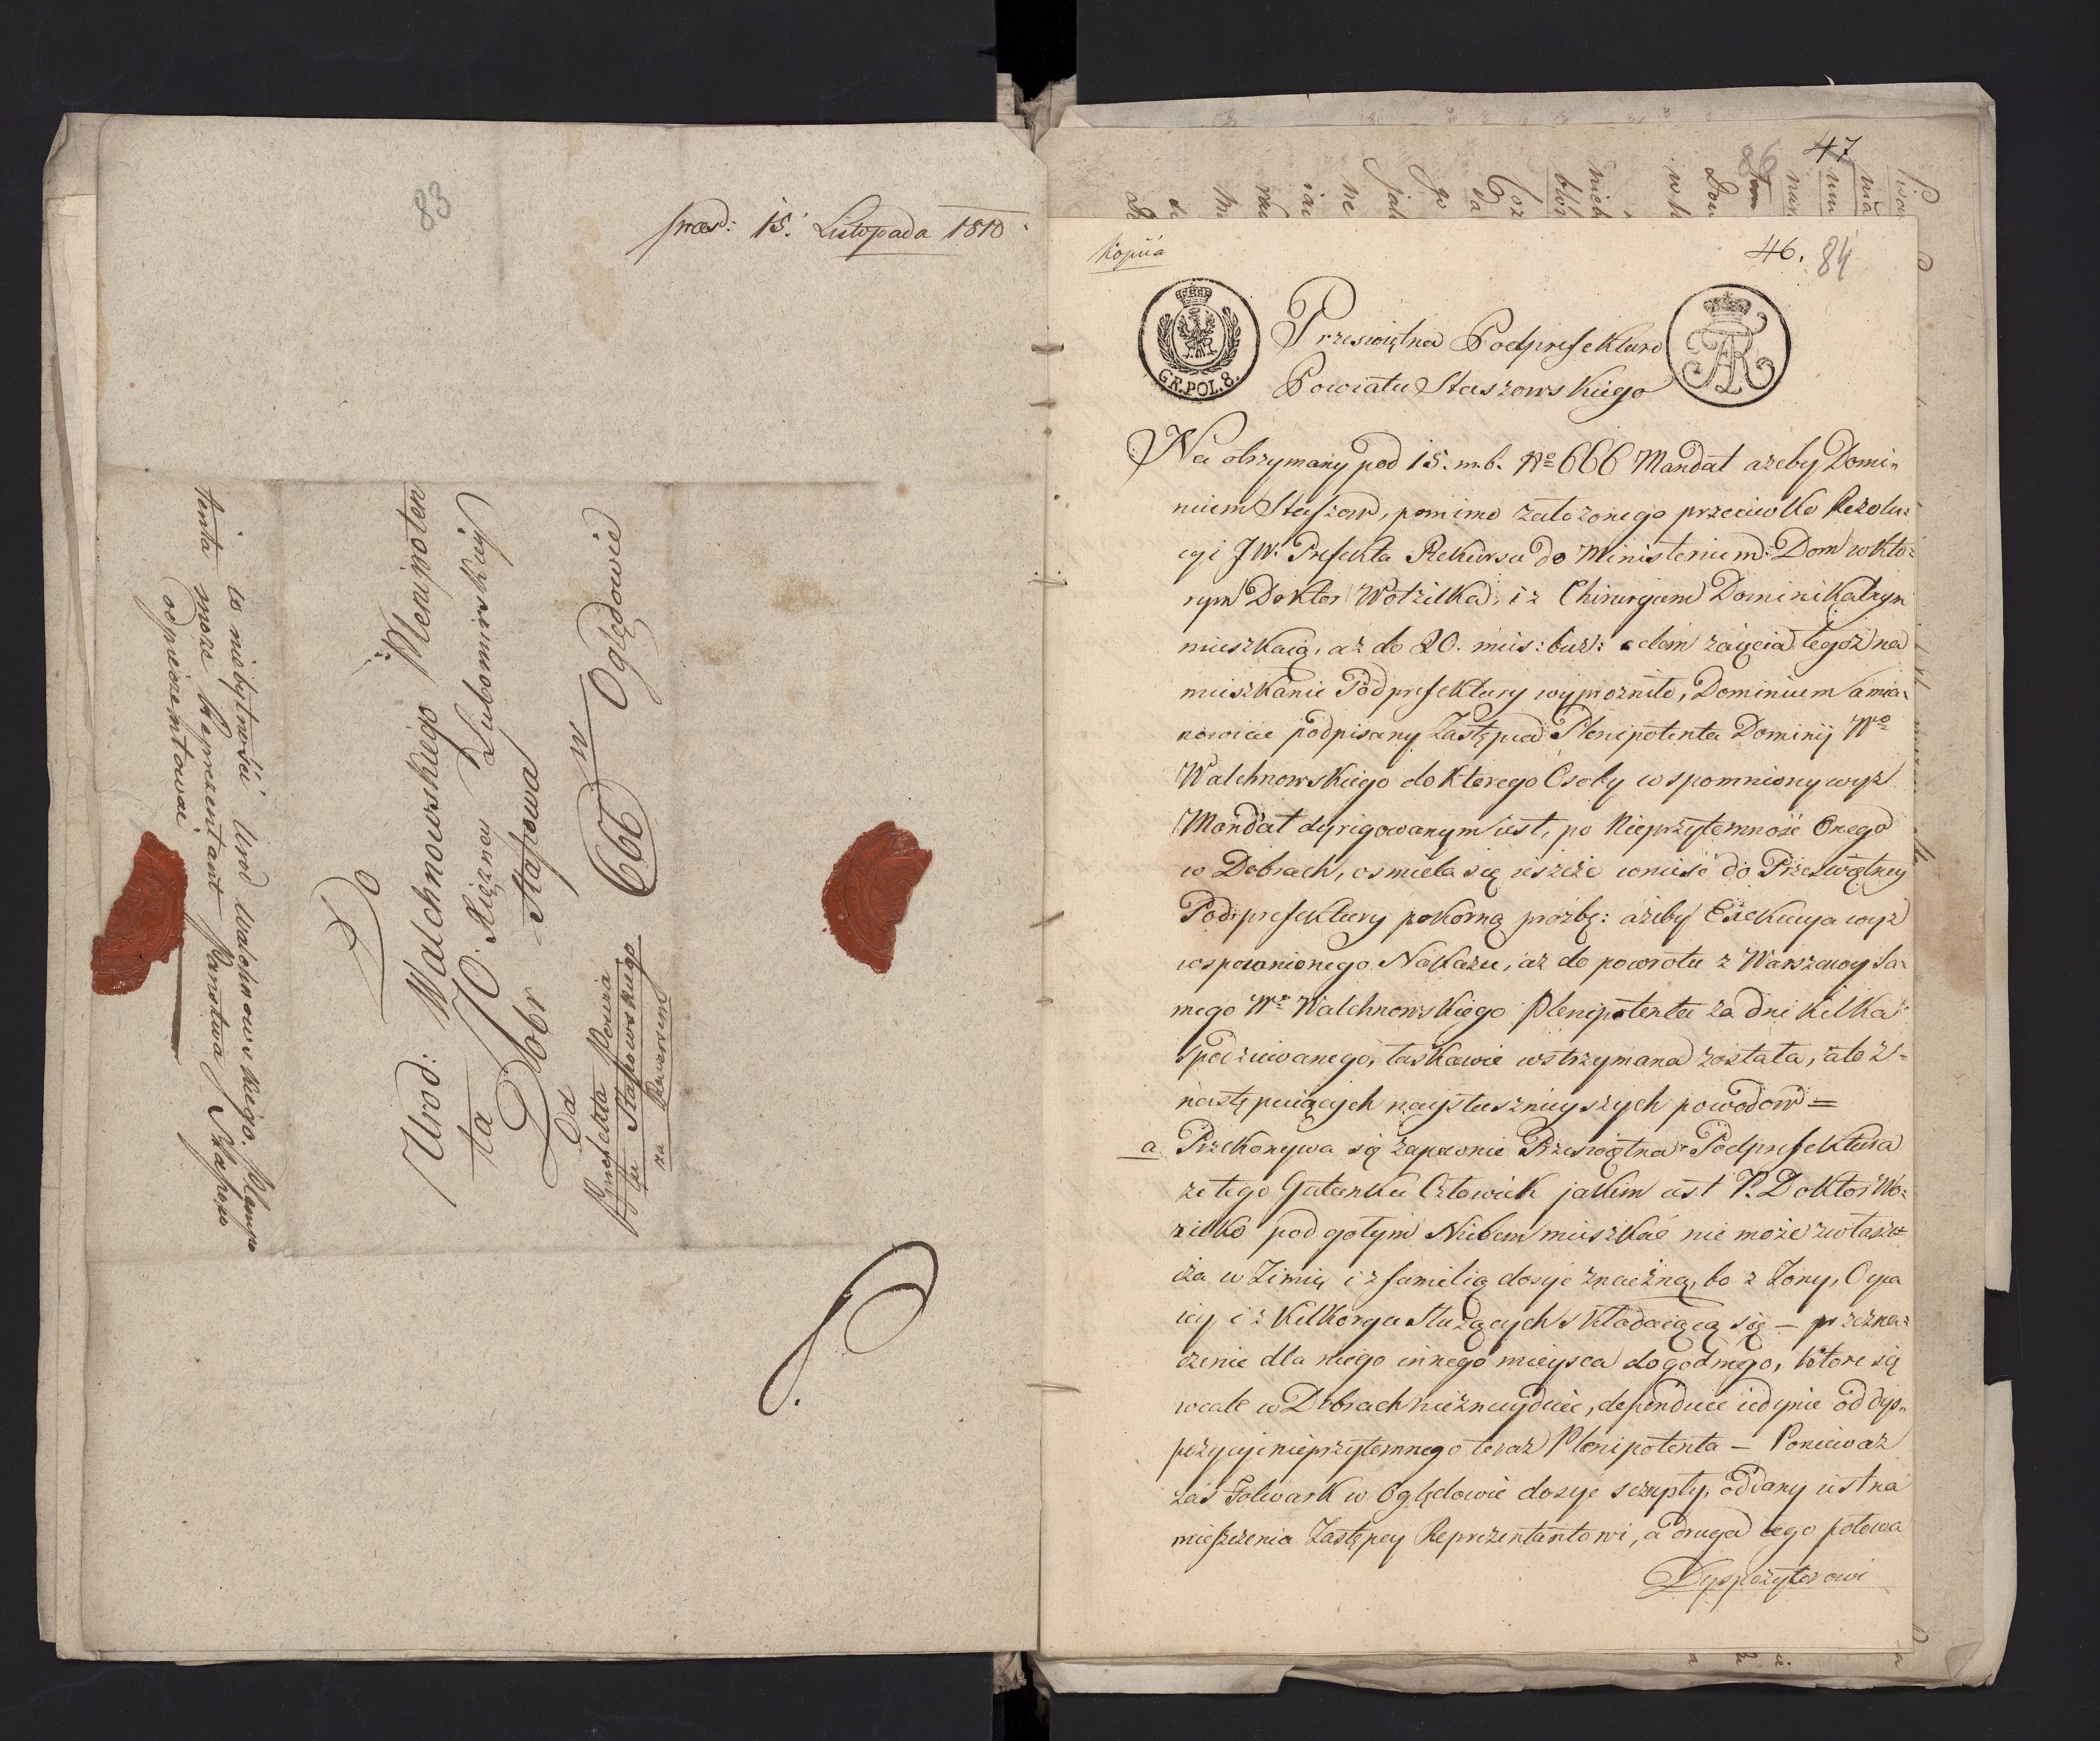 83
præs: 15. Listopada 1810
Do
Urod: Walchnowskiego Plenipoten
ta JO. Xiężnou Lubomirskiéy
Dobr Staszowa
w Oględowie
666
Od
Podprefekta Powia
tu Staszowskiego
za Rewersem
w niebytności Urod Walchnowskiego Plenipo
tenta može Reprezentant Panstwa Staszow
odpieczentować
47
86
Kopiia
46. 84
GR.POL.8.
Przeswiętna Podprefekturo
Powiatu Staszowskiego
Na otrzymany pod 15. m.b. No 666 Mandat ażeby Domi„
nium Staszow, pomimo założonego przeciwko Rezolu:
cyi JW. Prefekta Rekursu do Ministerium: Dom w kto:
rym Doktor Wotzilka, iz Chirurgiem Dominikalnym
mieszkaią, aż do 20. mies: biez: celem zaięcia tegoż na
mieszkanie Podprefektury wyprożniło, Dominium a mia:
nowicie podpisany Zastępca Plenipotenta Dominij Wo
Walchnowskiego do ktorego Osoby wspomniony wyż
Mandat dyrigowanym iest, po Nieprzytemność Onego
w Dobrach, osmiela się ieszcze wnieść do Przeswiętney
Podprefektury pokorną prożbę: ażeby Exekucya wyż
wspomnionego Nakazu, aż do powrotu z Warszawy Sa:
mego Wo Walchnowskiego Plenipotenta za dni kilka
spodziewanego, łaskawie wstrzymana została, a to z
następuiących naysłusznieyszych powodow =
a Przekonywa się zapewnie Przeswiętna Podprefektura
że tego Gatunku Człowiek jakim iest P. Doktor Wo:
zilko pod gołym Niebem mieszkać nie może zwłasz=
cza w Zimię i z familią dosyć znaczną, bo z Żony, Oyca
iey i z kilkorga Służących składaiącą się — przezna:
czenie dla niego innego mieysca dogodnego, ktore się
wcale w Dobrach nieznayduie, dependuie iedynie od dys„
pozycyi nieprzytemnego teraz Plenipotenta — Ponieważ
zaś Folwark w Oględowie dosyć szczupły, oddany iest na
mieszczenia Zastępcy Reprezentantowi, a druga iego połowa
Dyspozytorowi